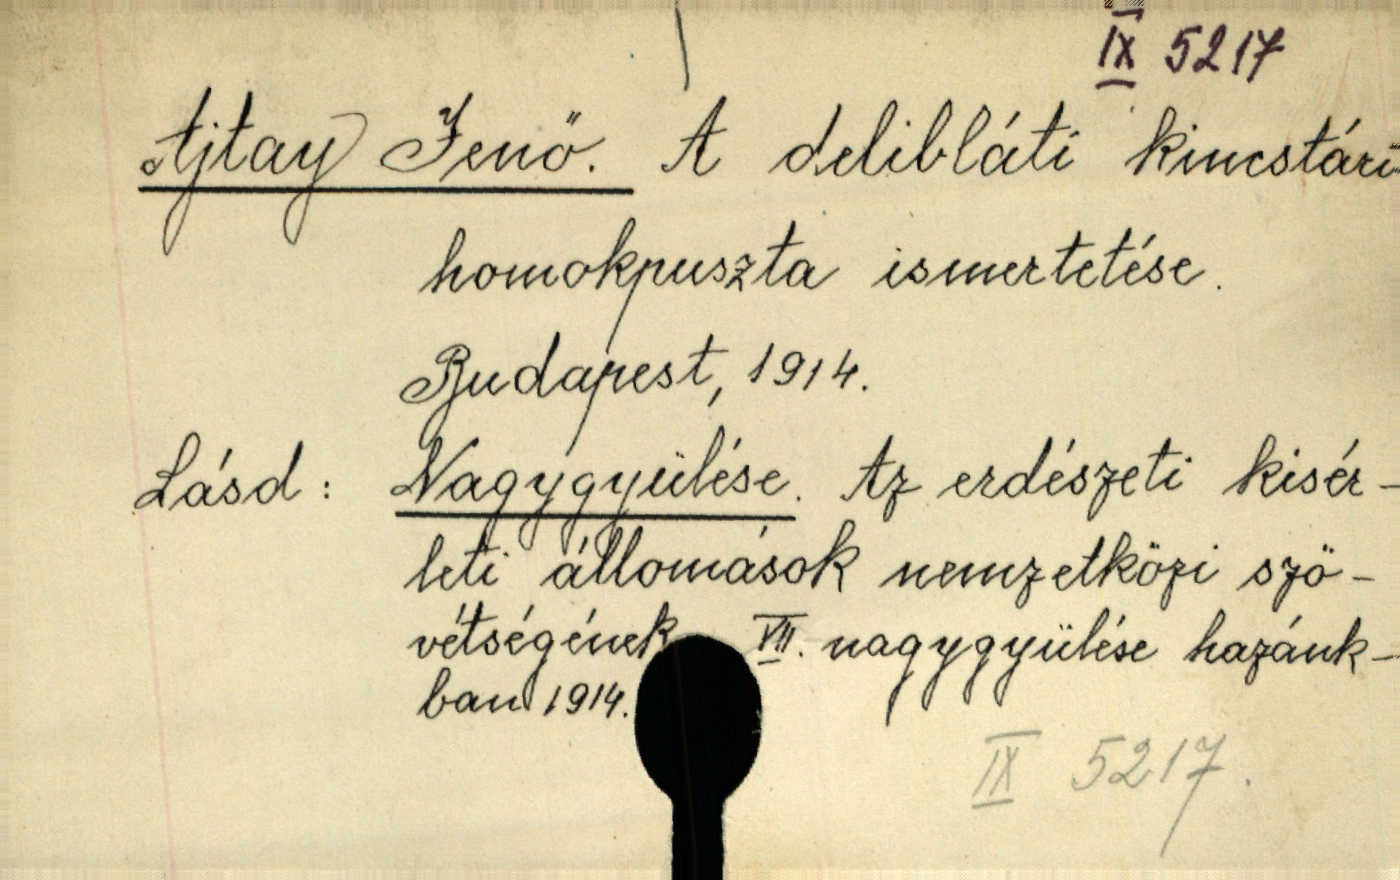 IX 5217
Ajtay Jenő. A delibláti kincstári
homokpuszta ismertetése.
Budapest, 1914.
Lásd: Nagygyülése. Az erdészeti kisér-
leti állomások nemzetközi szö-
vétségének VII. nagygyülése hazánk-
ban 1914.
IX 5217.